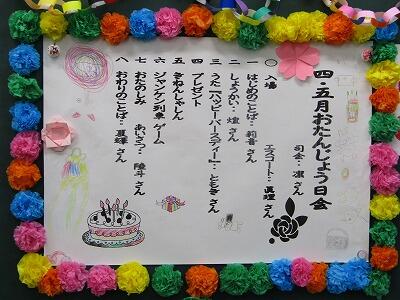 四・五月おたんじょう日会
司会…凛さん
〇 入場
エスコート…真理さん
一 はじめのことば…莉音さん
二 しょうかい…煌さん
三 うた「ハッピーバースディー」…ともきさん
四 プレゼント
五 きねんしゃしん
六 ジャンケン列車ゲーム
七 おたのしみ
あいさつ…陸斗さん
八 おわりのことば…夏輝さん